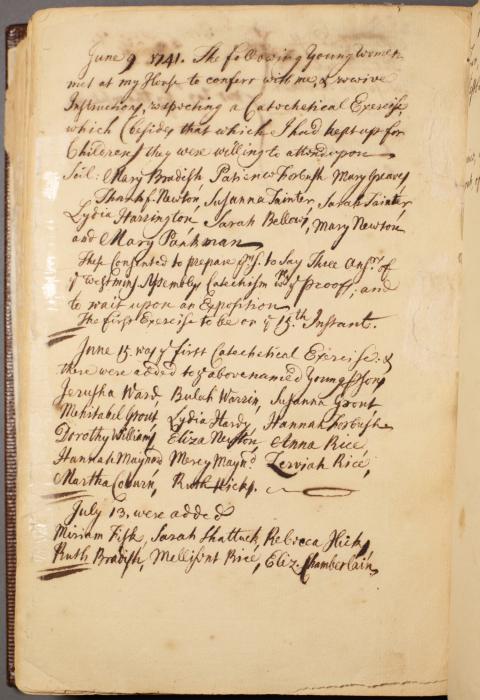 June 9 1741. The following Young Women
met at my House to conferr with me, & receive
Instructions respecting a Catechetical Exercise,
which (besides that which I had kept up for
Children) they were willing to attend upon
Scil: Mary Bradish Patience Forbush Mary Graves
Newton, Susanna Tainter, Sarah Tainter,
Lydia Harrington Sarah Bellows, Mary Newton
and Mary Pankman
They Consented to prepare yms. to Say Three Ansrs. of
ye Westmins. Assembly Catechism wth ye proofs, and
to wait upon an Exposition
The first Exercise to be on ye 15th Instant.
June 15. was ye first Catechetical Exercise. &
there were added to ye abovenamed Young psons
Jerusha Ward, Bulah Warrin, Susanna Grout,
Mehitabel Grout Lydia Hardy, Hannah Forbush
Dorothy Williams Eliza Newton, Anna Rice,
Hannah Maynard Mercy Maynd. Zerviah Rice,
Martha Coburn, Ruth Hicks.
July 13, were added
Miriam Fisk, Sarah Shattuck, Rebecca Hicks,
Ruth Bradish, Mellisent Rice, Eliz. Chamberlain,